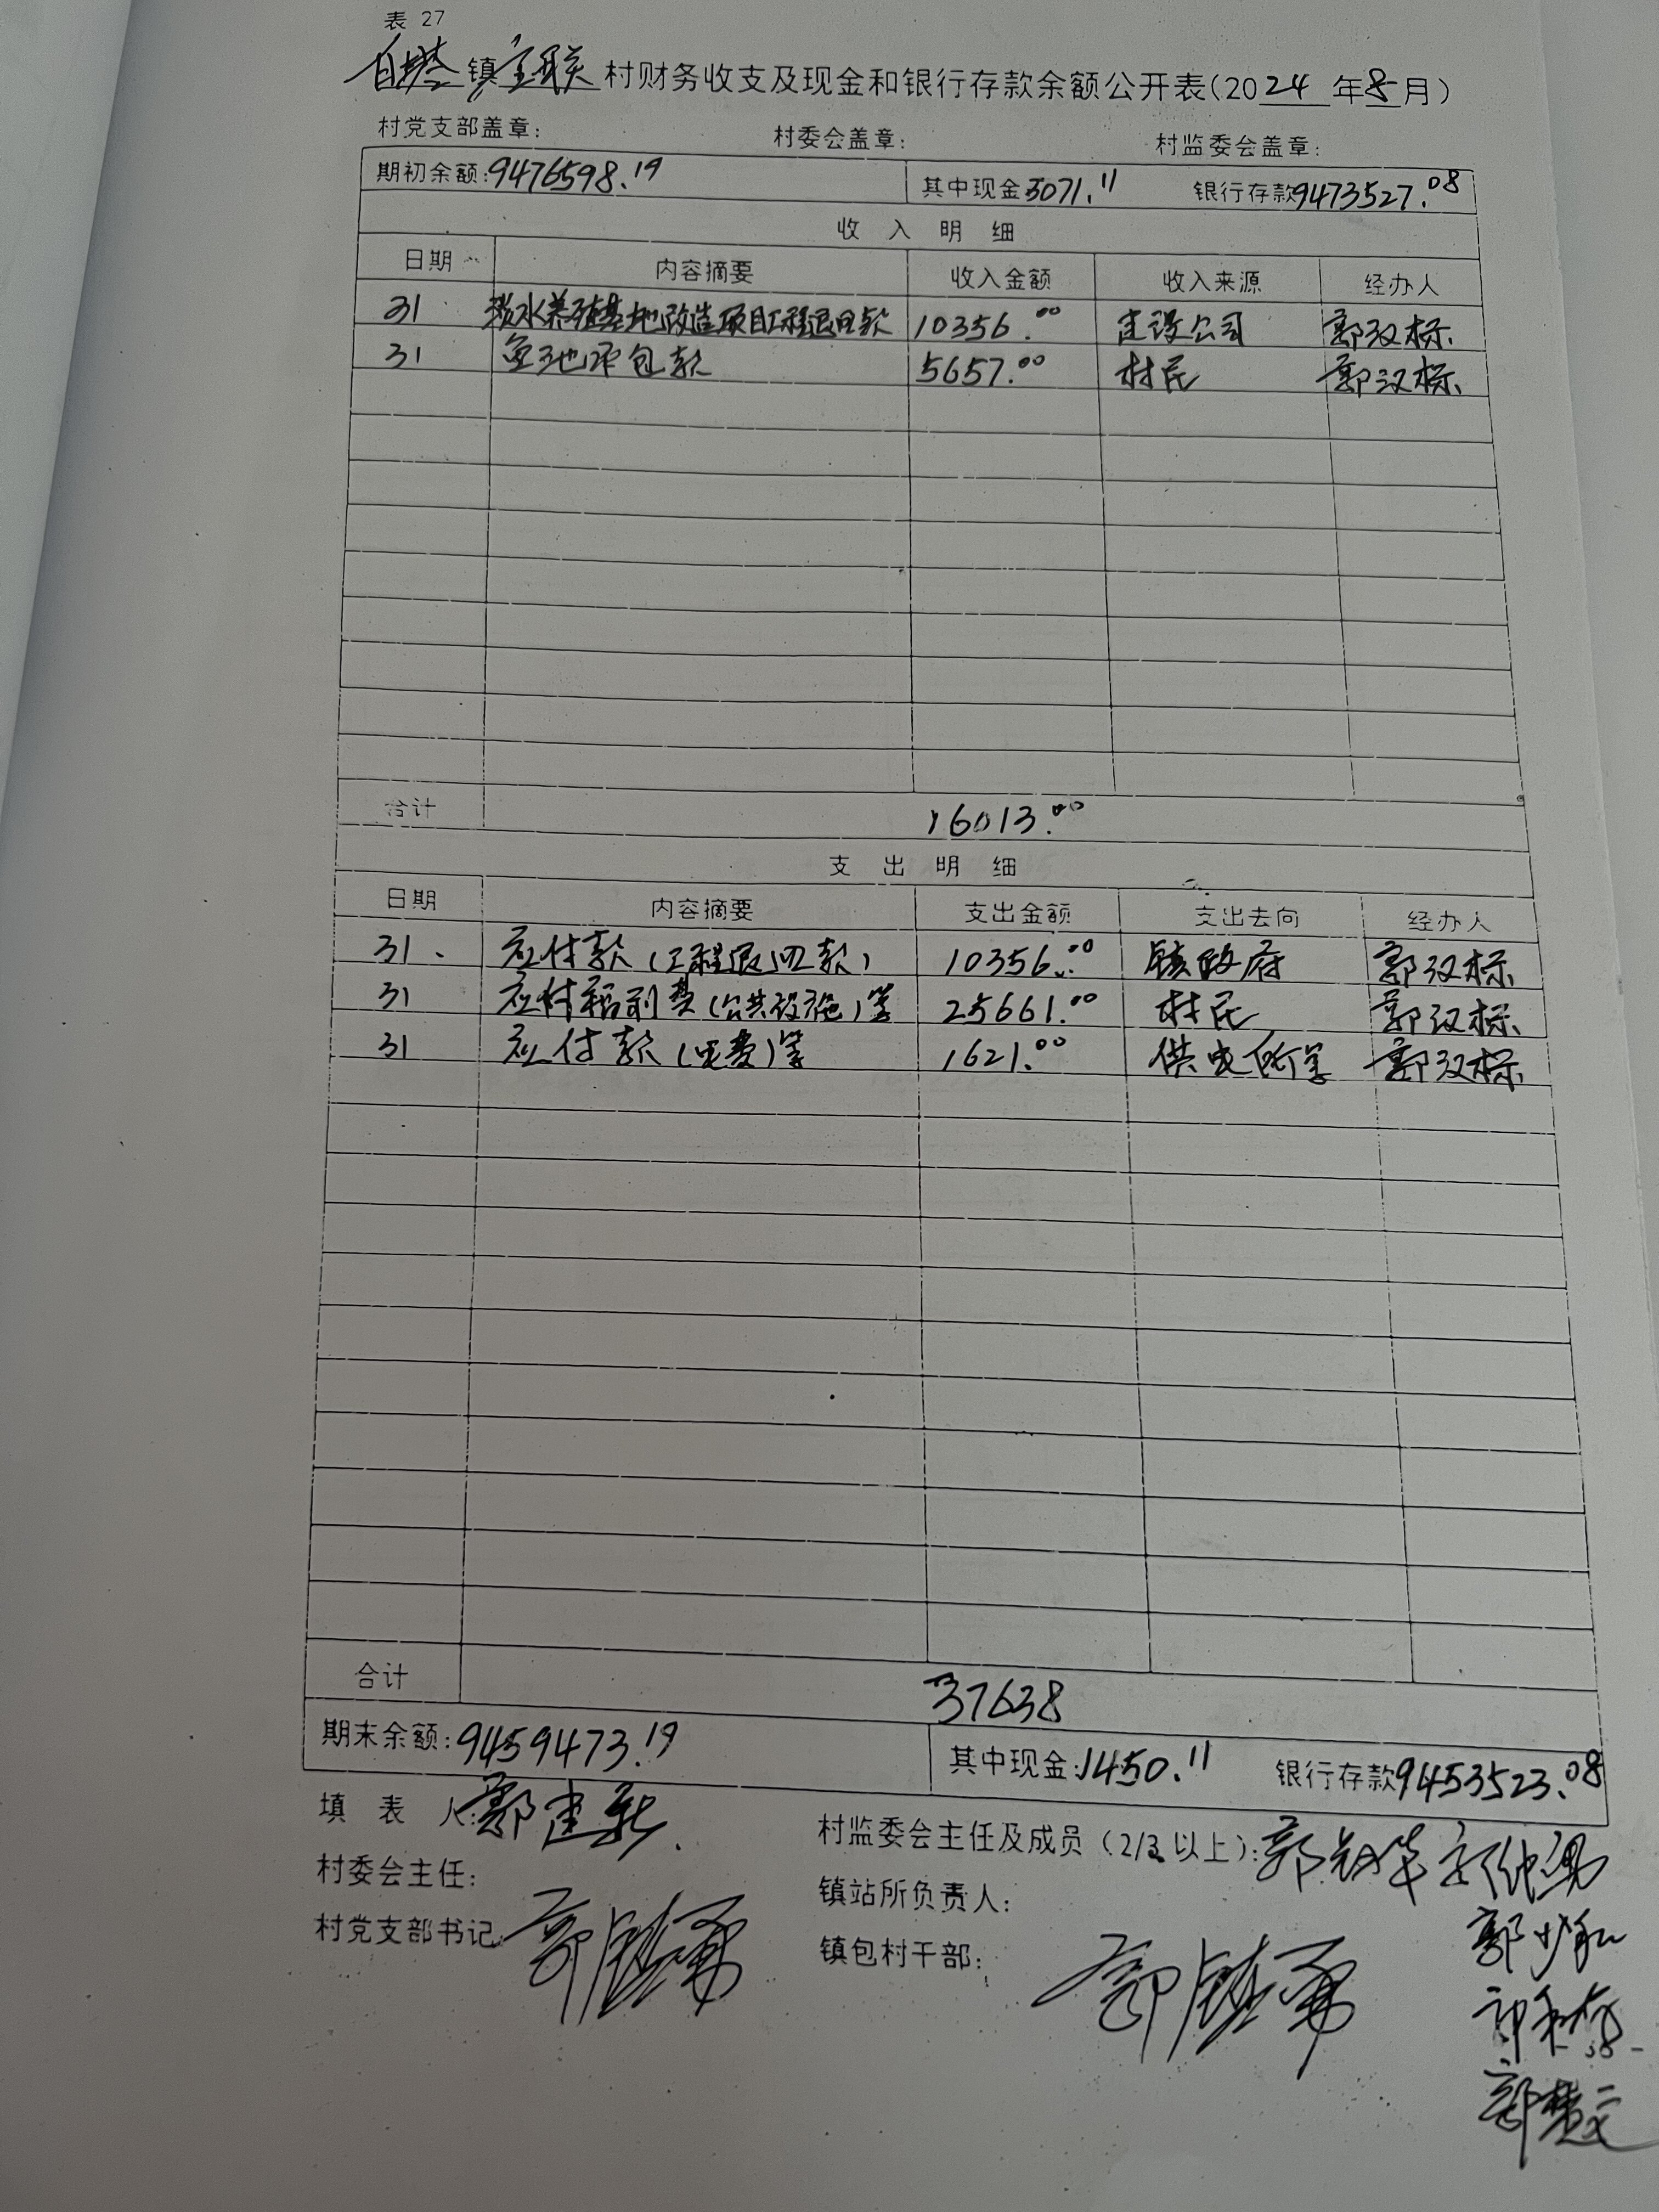 表 27
白塔镇宝联村财务收支及现金和银行存款余额公开表(2024年8月)
村党支部盖章: 村委会盖章: 村监委会盖章:
期初余额:9476598.19 其中现金3071.11 银行存款9473527.08
收入明细
日期 内容摘要 收入金额 收入来源 经办人
31 淡水养殖基地改造项目工程退回款 10356.00 建设公司 郭汉标
31 鱼池承包款 5657.00 村民 郭汉标
合计 16013.00
支出明细
日期 内容摘要 支出金额 支出去向 经办人
31 应付款(工程退回款) 10356.00 镇政府 郭汉标
31 应付福利费(公共设施)等 25661.00 村民 郭汉标
31 应付款(电费)等 1621.00 供电所等 郭汉标
合计 37638
期末余额:9459473.19 其中现金:1450.11 银行存款9453523.08
填表人:郭建新
村监委会主任及成员(2/3以上):
村委会主任:
镇站所负责人:
村党支部书记:
镇包村干部:
- 38 -